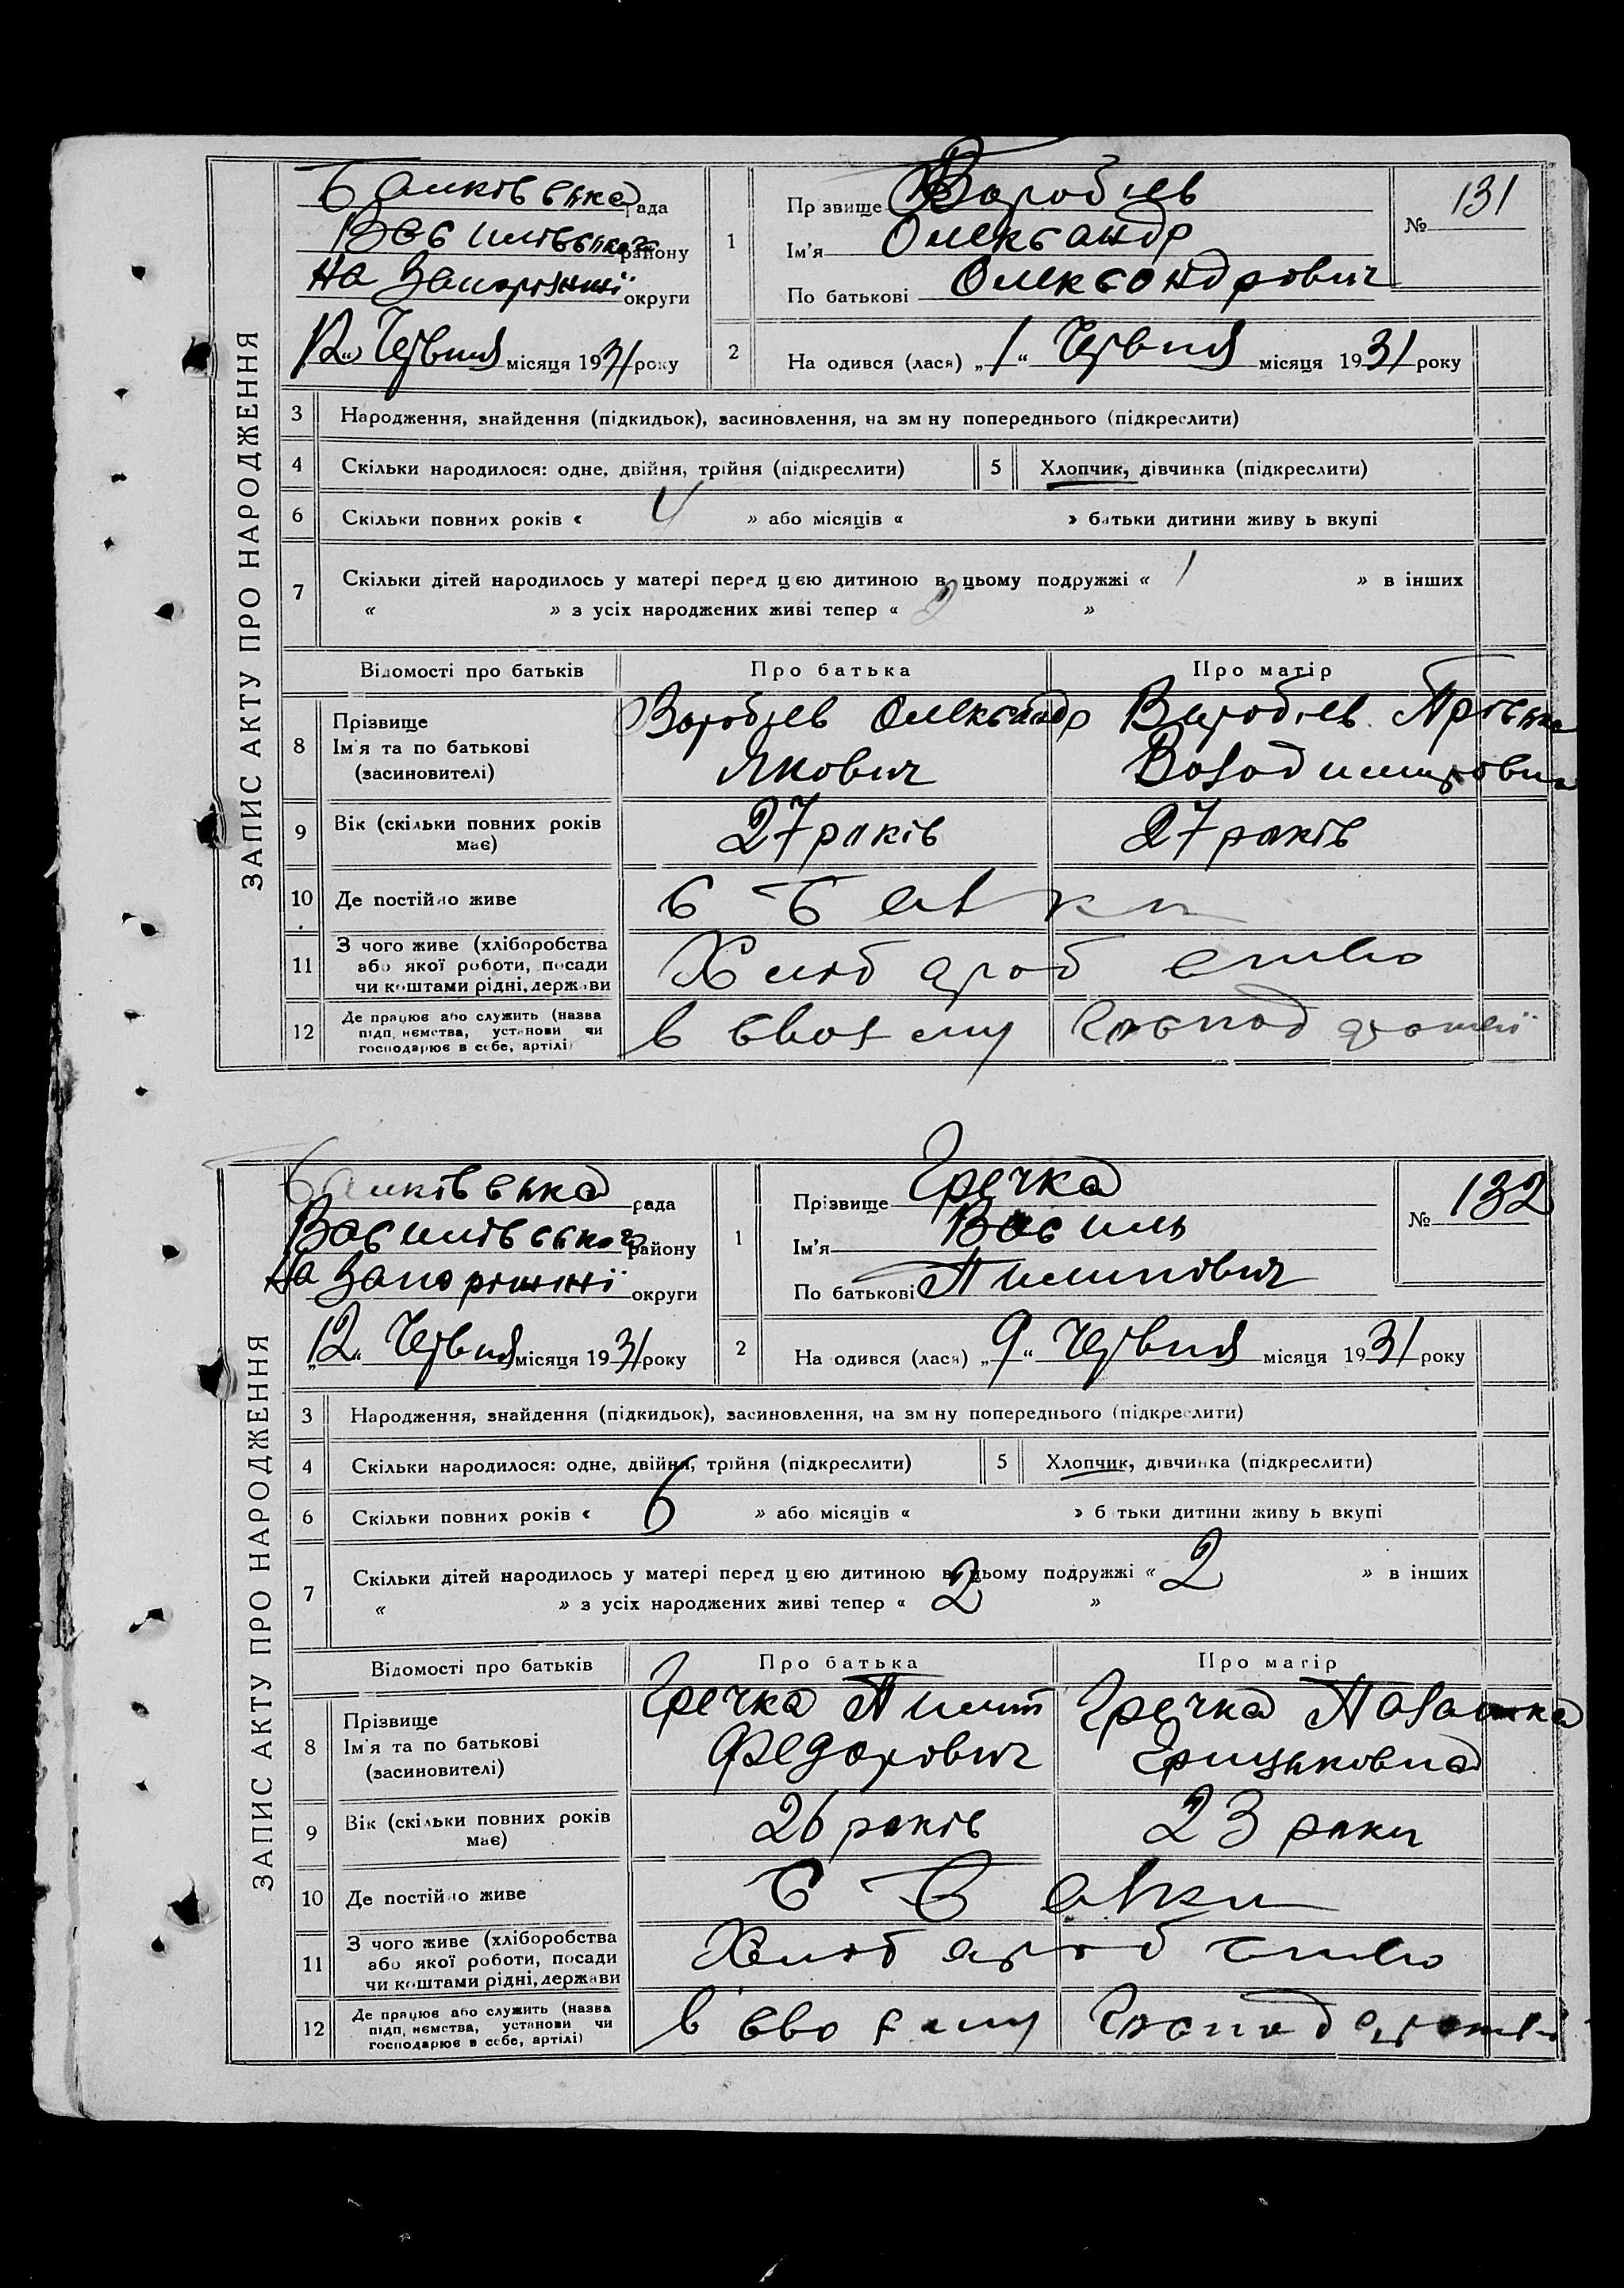 ЗАПИС АКТУ ПРО НАРОДЖЕННЯ
Балківська рада
Василівського району
на Запоріжжі округи
„12“ Червня місяця 1931 року
1
Прізвище Воробієв
Ім'я Олександр
По батькові Олександрович
№ 131
2
На одився (лася) „1“ Червня місяця 1931 року
3 Народження, знайдення (підкидьок), засиновлення, на зм ну попереднього (підкреслити)
4 Скільки народилося: одне, двійня, трійня (підкреслити)
5 Хлопчик, дівчинка (підкреслити)
6 Скільки повних років « 4 » або місяців « » батьки дитини живу ь вкупі
7 Скільки дітей народилось у матері перед цією дитиною в цьому подружжі « 1 » в інших
« » з усіх народжених живі тепер « 2 »
Відомості про батьків Про батька Про матір
8 Прізвище
Ім'я та по батькові
(засиновителі)
Воробієв Олександр
Якович
Воробієв Пріська
9 Вік (скільки повних років
має)
27 років 27 років
10 Де постійно живе
с Балки
11 З чого живе (хліборобства
або якої роботи, посади
чи коштами рідні, держави
Хліборобство
12 Де працює або служить (назва
підп, иємства, установи чи
господарює в себе, артілі)
в своєму
ЗАПИС АКТУ ПРО НАРОДЖЕННЯ
Балківська рада
Василівського району
на Запоріжжі округи
„12“ Червня місяця 1931 року
1
Прізвище Гречка
Ім'я Василь
По батькові Пилипович
№ 132
2
На одився (лася) „9“ Червня місяця 1931 року
3 Народження, знайдення (підкидьок), засиновлення, на зм ну попереднього (підкреслити)
4 Скільки народилося: одне, двійня, трійня (підкреслити)
5 Хлопчик, дівчинка (підкреслити)
6 Скільки повних років « 6 » або місяців « » б тьки дитини живу ь вкупі
7 Скільки дітей народилось у матері перед цією дитиною в цьому подружжі « 2 » в інших
« » з усіх народжених живі тепер « 2 »
Відомості про батьків Про батька Про матір
8 Прізвище
Ім'я та по батькові
(засиновителі)
Гречка Пилип
Федорович
Гречка Палажка
Грицьковна
9 Вік (скільки повних років
має)
26 років 23 роки
10 Де постійно живе
с Балки
11 З чого живе (хліборобства
або якої роботи, посади
чи коштами рідні, держави
Хліборобство
12 Де працює або служить (назва
підп, иємства, установи чи
господарює в себе, артілі)
в своєму